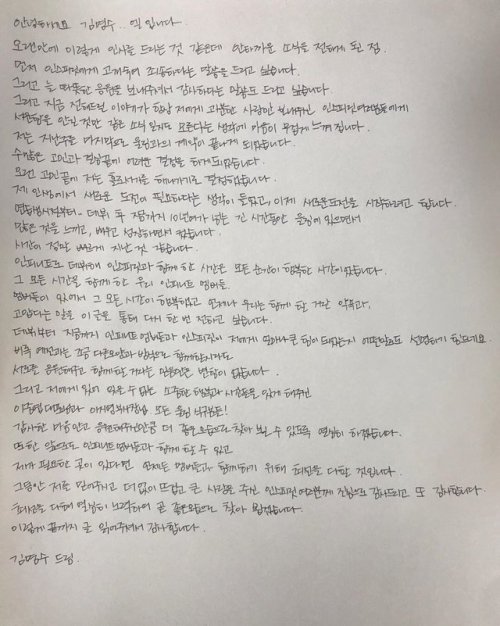 안녕하세요 김명수.. 엘 입니다.
오랜만에 이렇게 인사를 드리는 것 같은데 안타까운 소식을 전하게 된 점.
먼저 인스피릿에게 고개숙여 죄송하다는 말씀을 드리고 싶습니다.
그리고 늘 따뜻한 응원을 보내주셔서 감사하다는 말씀도 드리고 싶습니다.
그리고 지금 전해드릴 이야기가 항상 저에게 과분한 사랑만 보내주신 인스피릿 여러분들에게
서운함을 안길 것만 같은 소식일지도 모른다는 생각에 마음이 무겁게 느껴집니다.
저는 지난주를 마지막으로 울림과의 계약이 끝나게 되었습니다.
수많은 고민과 결정끝에 어려운 결정을 하게되었습니다.
오랜 고민 끝에 저는 홀로서기를 해나가기로 결정했습니다.
제 인생에서 새로운 도전이 필요하다는 생각이 들었고, 이제 새로운도전을 시작하려고 합니다.
연습생시절부터~ 데뷔 후 지금까지 10년여가 넘는 긴 시간동안 울림에 있으면서
많은 것을 느끼고, 배우고 성장하면서 컸습니다.
시간이 정말 빠르게 지난 것 같습니다.
인피니트로 데뷔해 인스피릿과 함께 한 시간은 모든 순간이 행복한 시간이었습니다.
그 모든 시간을 함께 한 우리 인피니트 멤버들.
멤버들이 있어서 그 모든 시간이 행복했고 언제나 우리는 함께 할 거란 약속과,
고맙다는 말을 이 글을 통해 다시 한 번 전하고 싶습니다.
데뷔부터 지금까지 인피니트 멤버들과 인스피릿이 저에게 얼마나 큰 힘이 되었는지 이루말로 설명하기 힘드네요.
비록 예전과는 조금 다른모양과 방향으로 함께할지라도
서로를 응원해주고 함께할 거라는 마음만은 변함이 없습니다.
그리고 저에게 잊어 있을 수 없는 소중한 행복과 시간들을 있게 해주신
이중엽 대표님과 이사님 모든 울림 식구분들!
감사한 마음안고 응원해주신만큼 더 좋은모습으로 찾아 뵐 수 있도록 열심히 하겠습니다.
또한 앞으로도 인피니트 멤버들과 함께 할 수 있고
제가 필요한 곳이 있다면 언제든 멤버들과 함께하기 위해 최선을 다할 것입니다.
그동안 저를 믿어주시고 더없이 뜨겁고 큰 사랑을 주신 인스피릿 여러분께 진심으로 감사드리고 또 감사합니다.
최선을 다해 열심히 노력하여 곧 좋은모습으로 찾아 뵙겠습니다.
이렇게 끝까지 글 읽어주셔서 감사합니다.
김명수 드림.